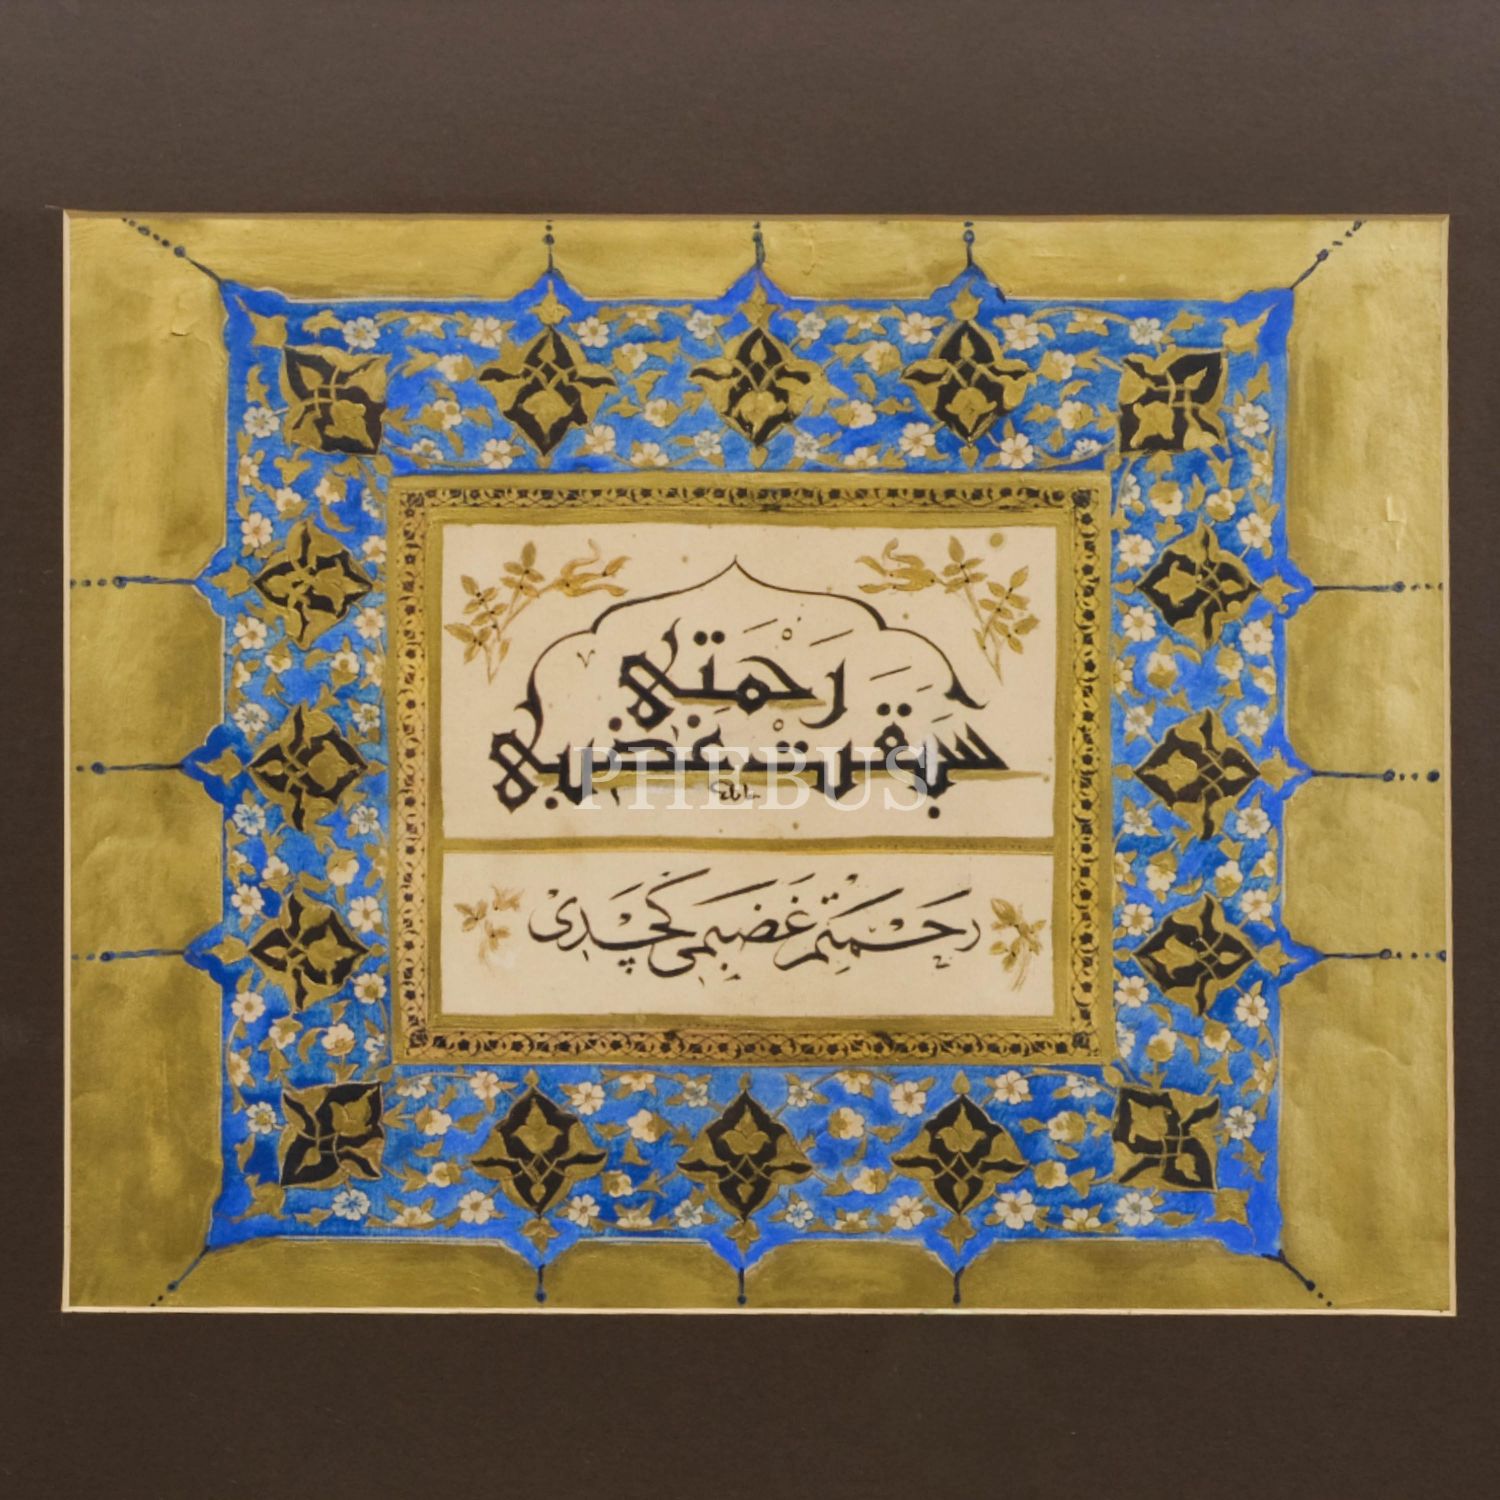 رَحْمَتِي
سَبَقَت غضبي
رَحْمَتِم غَضَبِمى كَچدى
PHEBUS